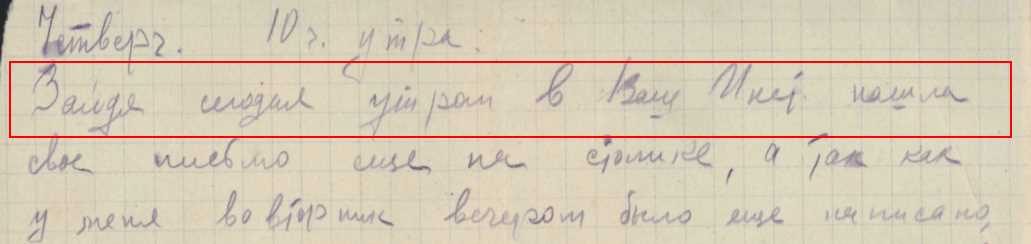 Четверг. 10 ч. утра.
Зайдя сегодня утром в Ваш Инст. нашла
свое письмо еще на столике, а так как
у меня во вторник вечером было еще написано,